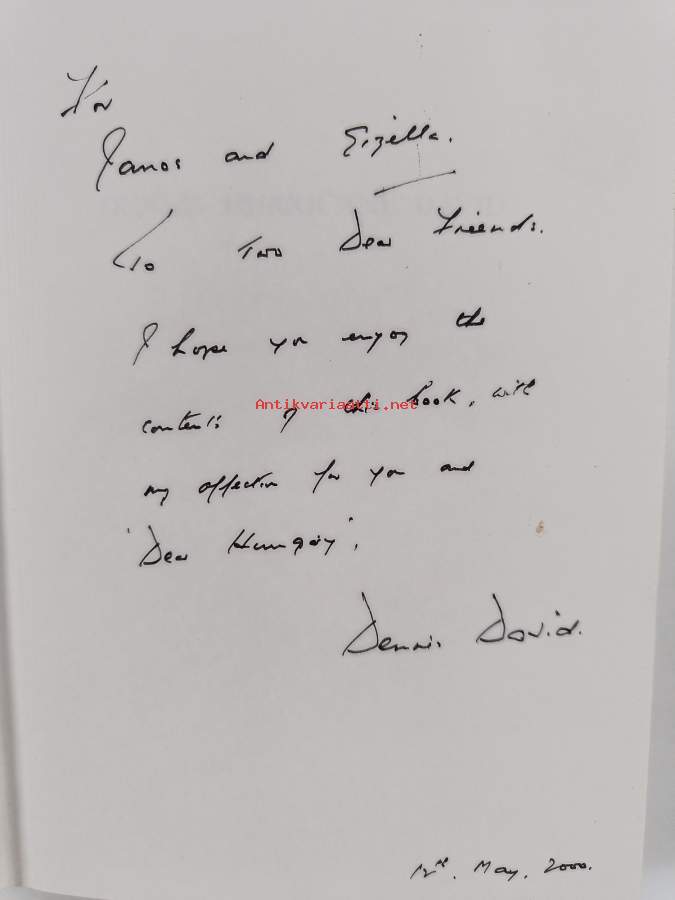 For
Janos and Gizella.
To Two Dear Friends.
I hope you enjoy the
contents of this book, with
Antikvariaatti.net
my affection for you and
'Dear Hungary',
Dennis David.
12th. May, 2000.